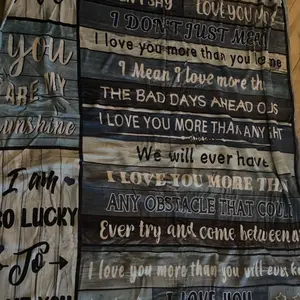 LOVE YOU MORE
I DON'T JUST MEAN
I love you more than you love me
I Mean I love more than
THE BAD DAYS AHEAD OUS
I LOVE YOU MORE THAN ANY
We will ever have
I LOVE YOU MORE THAN
ANY OBSTACLE THAT COUL
Ever try and come between
I love you more than you will ever
I LOVE YOU
you
ARE MY
sunshine
I am
SO LUCKY
To